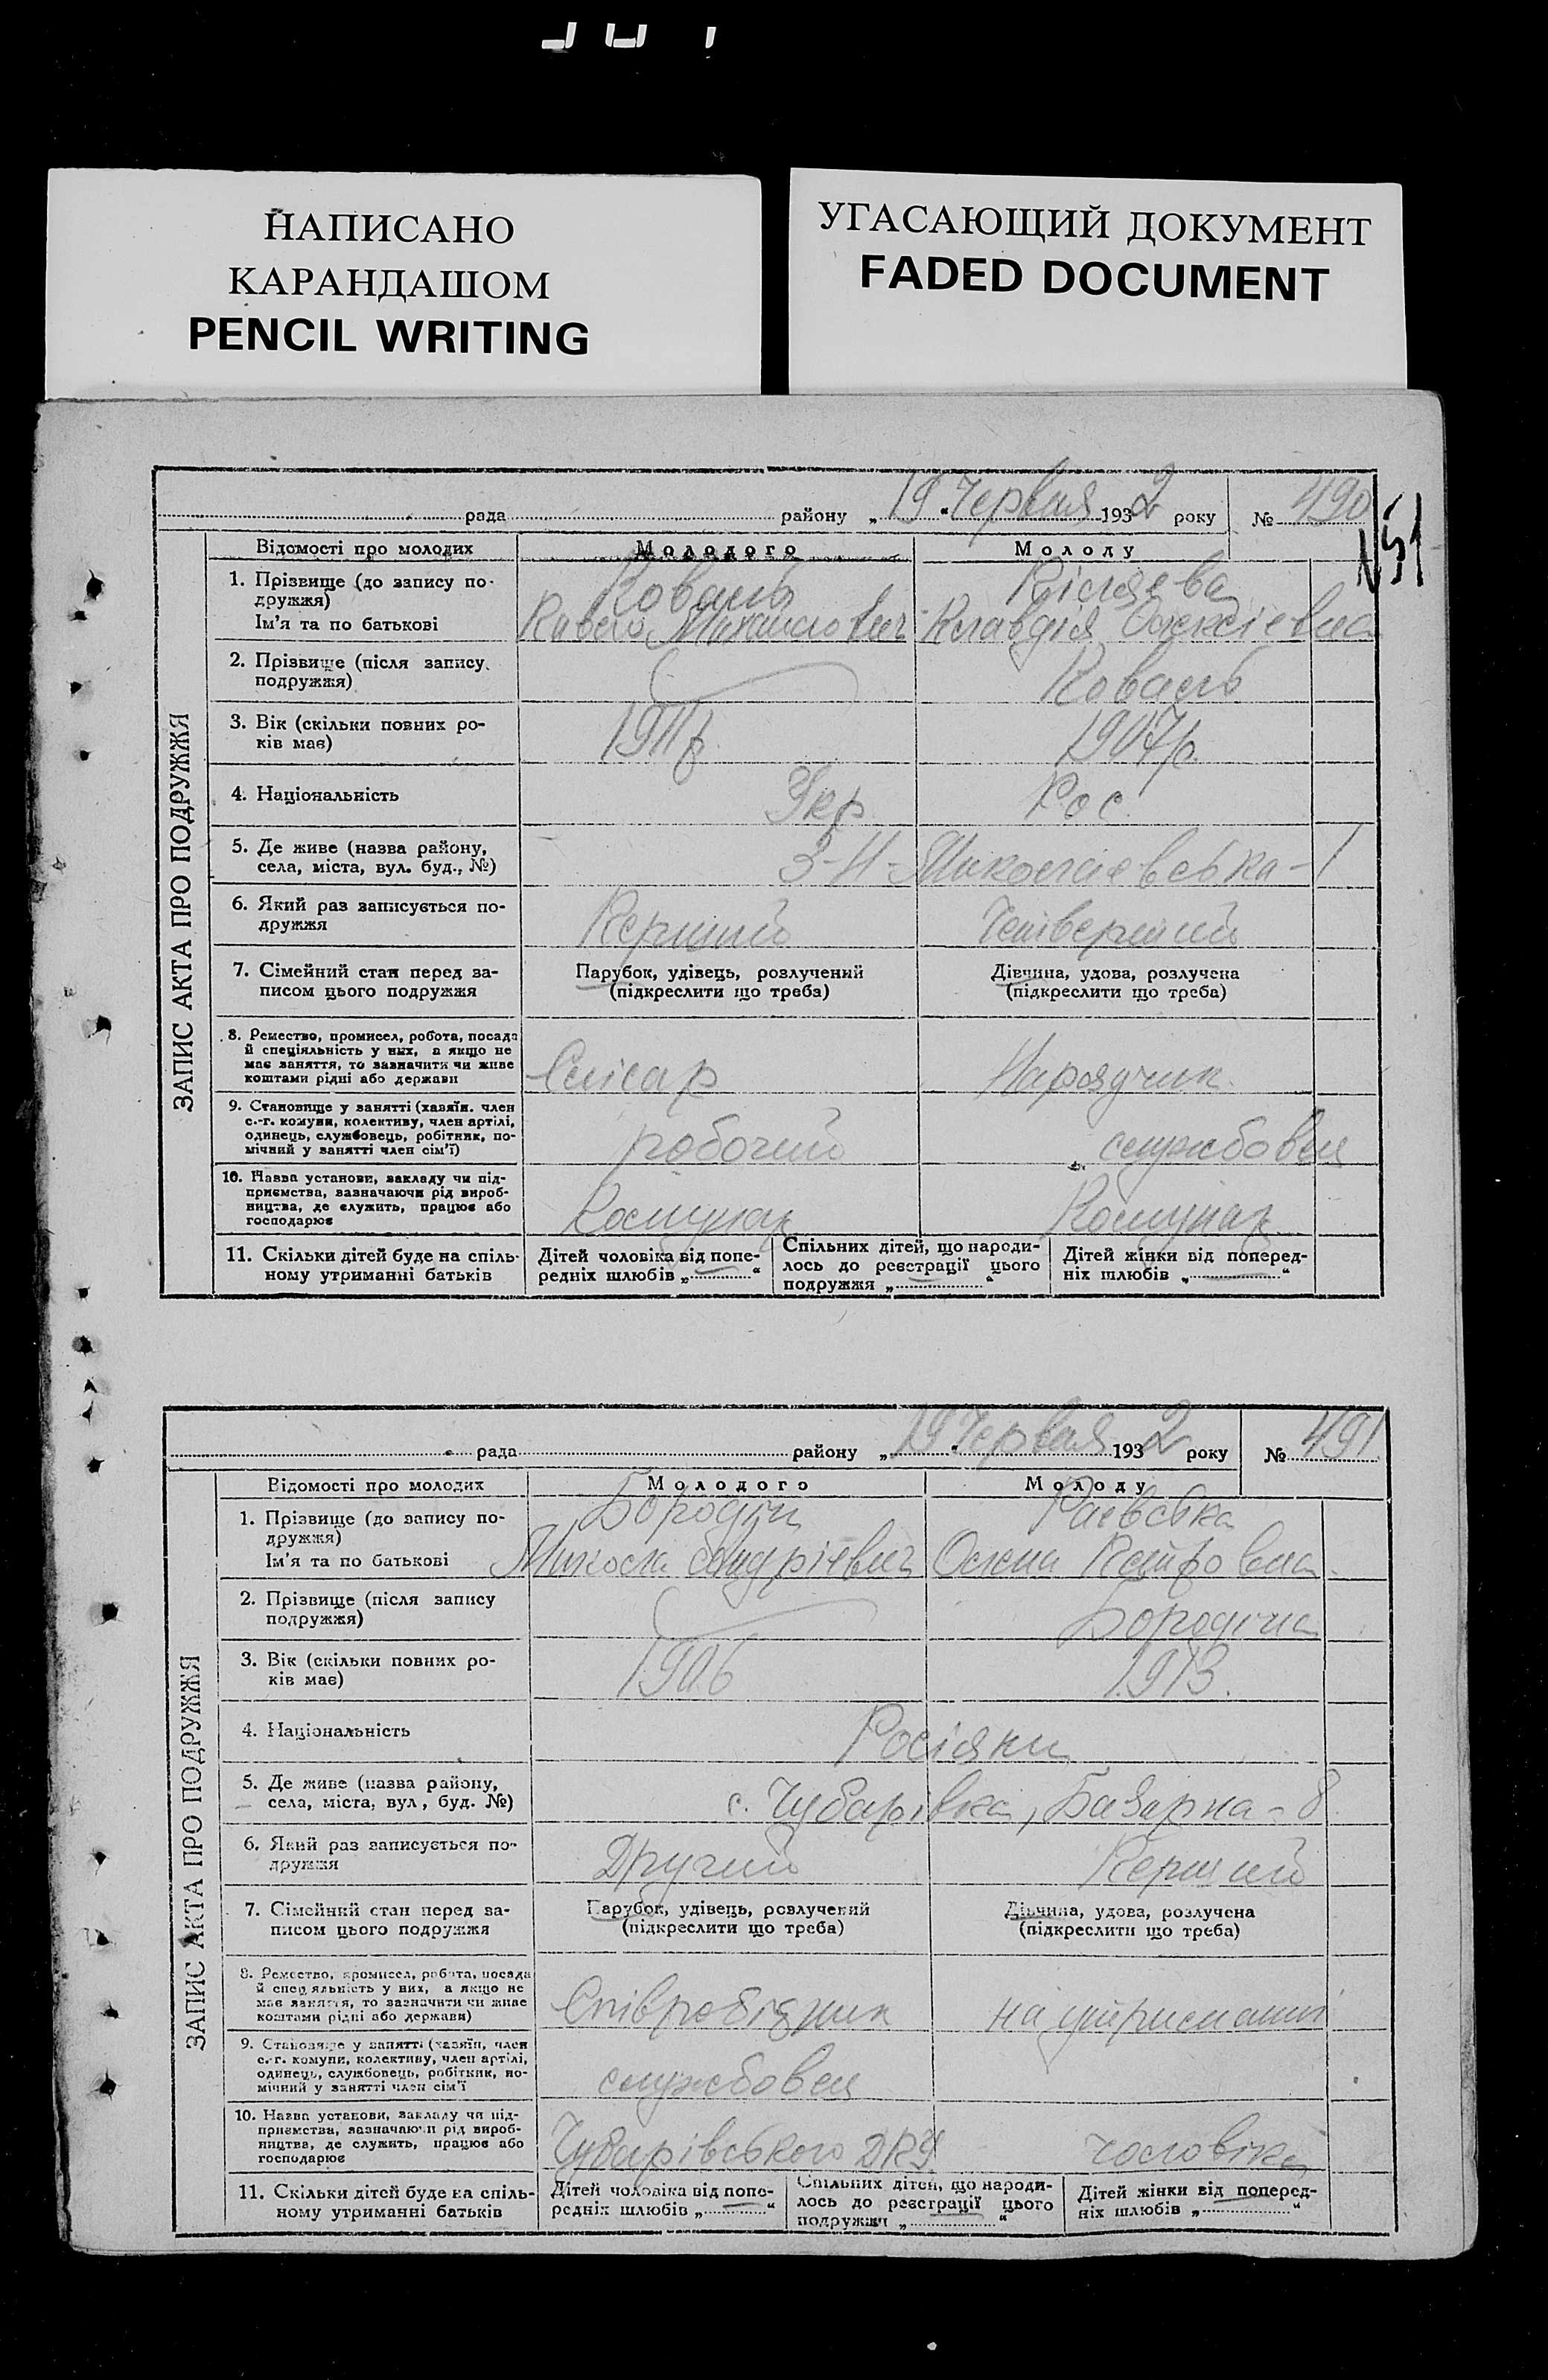 НАПИСАНО
КАРАНДАШОМ
PENCIL WRITING
УГАСАЮЩИЙ ДОКУМЕНТ
FADED DOCUMENT
ЗАПИС АКТА ПРО ПОДРУЖЖЯ
рада району „19“ Червня 1932 року № 490
151
Відомості про молодих Молодого Молоду
1. Прізвище (до запису по-
дружжя)
Коваль Кісляєва
Ім'я та по батькові Павело Михайлович Клавдія Олексієвна
2. Прізвище (після запису
подружжя)
Коваль
3. Вік (скільки повних ро-
ків має)
1911р. 1907р.
4. Національність Укр Рос.
5. Де живе (назва району,
села, міста, вул. буд., №)
3-Н-Миколаєвська-1
6. Який раз записується по-
дружжя
Перший Четвертий
7. Сімейний стан перед за-
писом цього подружжя
Парубок, удівець, розлучений
(підкреслити що треба)
Дівчина, удова, розлучена
(підкреслити що треба)
8. Ремество, промисел, робота, посада
й спеціяльність у них, а якщо не
має заняття, то зазначити чи живе
коштами рідні або держави
Слісар Нарядчик
9. Становище у занятті (хазяїн. член
с.-г. комуни, колективу, член артілі,
одинець, службовець, робітник, по-
мічний у занятті член сім'ї)
робочий службовец
10. Назва установи, закладу чи під-
приємства, зазначаючи рід вироб-
ництва, де служить, працює або
господарює
Комунар Комунар
11. Скільки дітей буде на спіль-
ному утриманні батьків
Дітей чоловіка від попе-
редніх шлюбів „ “
Спільних дітей, що народи-
лось до реєстрації цього
подружжя „ “
Дітей жінки від поперед-
ніх шлюбів „ “
ЗАПИС АКТА ПРО ПОДРУЖЖЯ
рада району „19“ Червня 1932 року № 491
Відомості про молодих Молодого Молоду
1. Прізвище (до запису по-
дружжя)
Бородін Раєвська
Ім'я та по батькові Микола Андрієвич Олена Петровна
2. Прізвище (після запису
подружжя)
Бородіна
3. Вік (скільки повних ро-
ків має)
1906 1913.
4. Національність Росіяни
5. Де живе (назва району,
села, міста, вул, буд. №)
с. Чубарівка, Базарна-8
6. Який раз записується по-
дружжя
Другий Перший
7. Сімейний стан перед за-
писом цього подружжя
Парубок, удівець, розлучений
(підкреслити що треба)
Дівчина, удова, розлучена
(підкреслити що треба)
8. Ремество, промисел, робота, посада
й спеціяльність у них, а якщо не
має заняття, то зазначити чи живе
коштами рідні або держави)
Співробідник на утриманні
9. Становище у занятті (хазяїн, член
с.-г. комуни, колективу, член артілі,
одинець, службовець, робітник, по-
мічний у занятті член сім'ї
службовец
10. Назва установи, закладу чи під-
приємства, зазначаючи рід вироб-
ництва, де служить, працює або
господарює
Чубарівського ДПУ. чоловіка
11. Скільки дітей буде на спіль-
ному утриманні батьків
Дітей чоловіка від попе-
редніх шлюбів „ “
Спільних дітей, що народи-
лось до реєстрації цього
подружжя „ “
Дітей жінки від поперед-
ніх шлюбів „ “